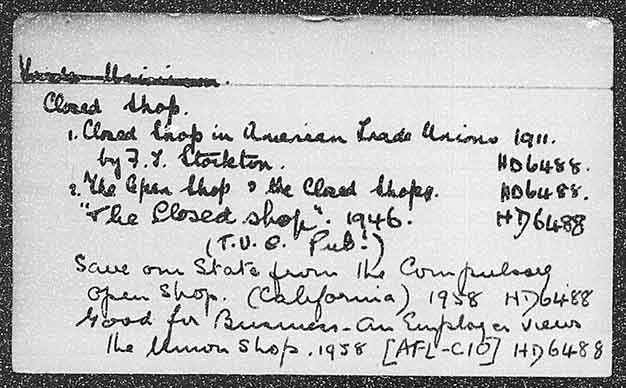 Trade Unionism.
Closed Shop.
1. Closed Shop in American Trade Unions 1911.
by F. T. Stockton. HD6488.
2. The Open Shop & the Closed Shop. HD6488.
"The Closed shop". 1946. HD6488
(T.U.C. Pub:)
Save our State from the Compulsory
Open Shop. (California) 1958 HD6488
Good for Business - An Employer views
the Union Shop. 1958 [AFL-CIO] HD6488